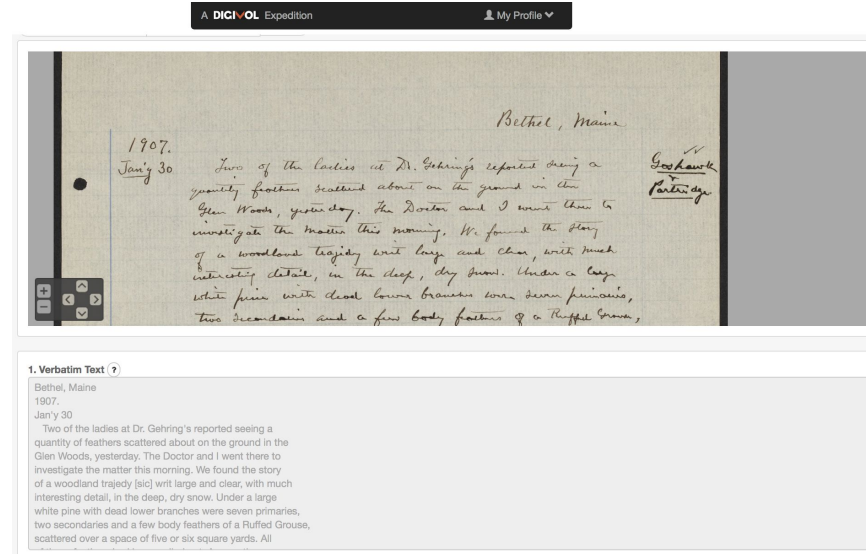 A DIGIVOL Expedition
My Profile
Bethel, Maine
1907.
Jan'y 30
Goshawk
&
Partridge
Two of the ladies at Dr. Gehring's reported seeing a
quantity feathers scattered about on the ground in the
Glen Woods, yesterday. The Doctor and I went there to
investigate the matter this morning. We found the story
of a woodland trajedy writ large and clear, with much
interesting detail, in the deep, dry snow. Under a large
white pine with dead lower branches were seven primaries,
two secondaries and a few body feathers of a Ruffed Grouse,
1. Verbatim Text ?
Bethel, Maine
1907.
Jan'y 30
Two of the ladies at Dr. Gehring's reported seeing a
quantity of feathers scattered about on the ground in the
Glen Woods, yesterday. The Doctor and I went there to
investigate the matter this morning. We found the story
of a woodland trajedy [sic] writ large and clear, with much
interesting detail, in the deep, dry snow. Under a large
white pine with dead lower branches were seven primaries,
two secondaries and a few body feathers of a Ruffed Grouse,
scattered over a space of five or six square yards. All